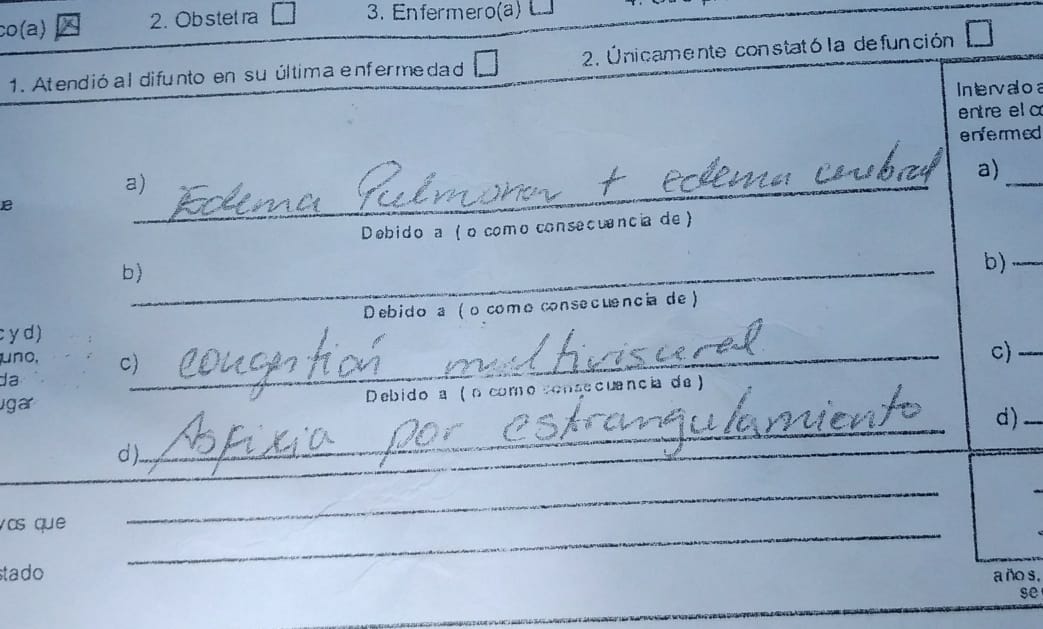 co(a) 2. Obstetra 3. Enfermero(a)
1. Atendió al difunto en su última enfermedad 2. Únicamente constató la defunción
Intervalo a
entre el co
enfermed
a) Edema Pulmonar + edema cerebral a)
Debido a ( o como consecuencia de )
b) b)
Debido a ( o como consecuencia de )
c y d)
uno,
c) congestión multivisceral c)
da
Debido a ( o como consecuencia de )
ugar
d) Asfixia por estrangulamiento d)
vas que
stado
años,
se